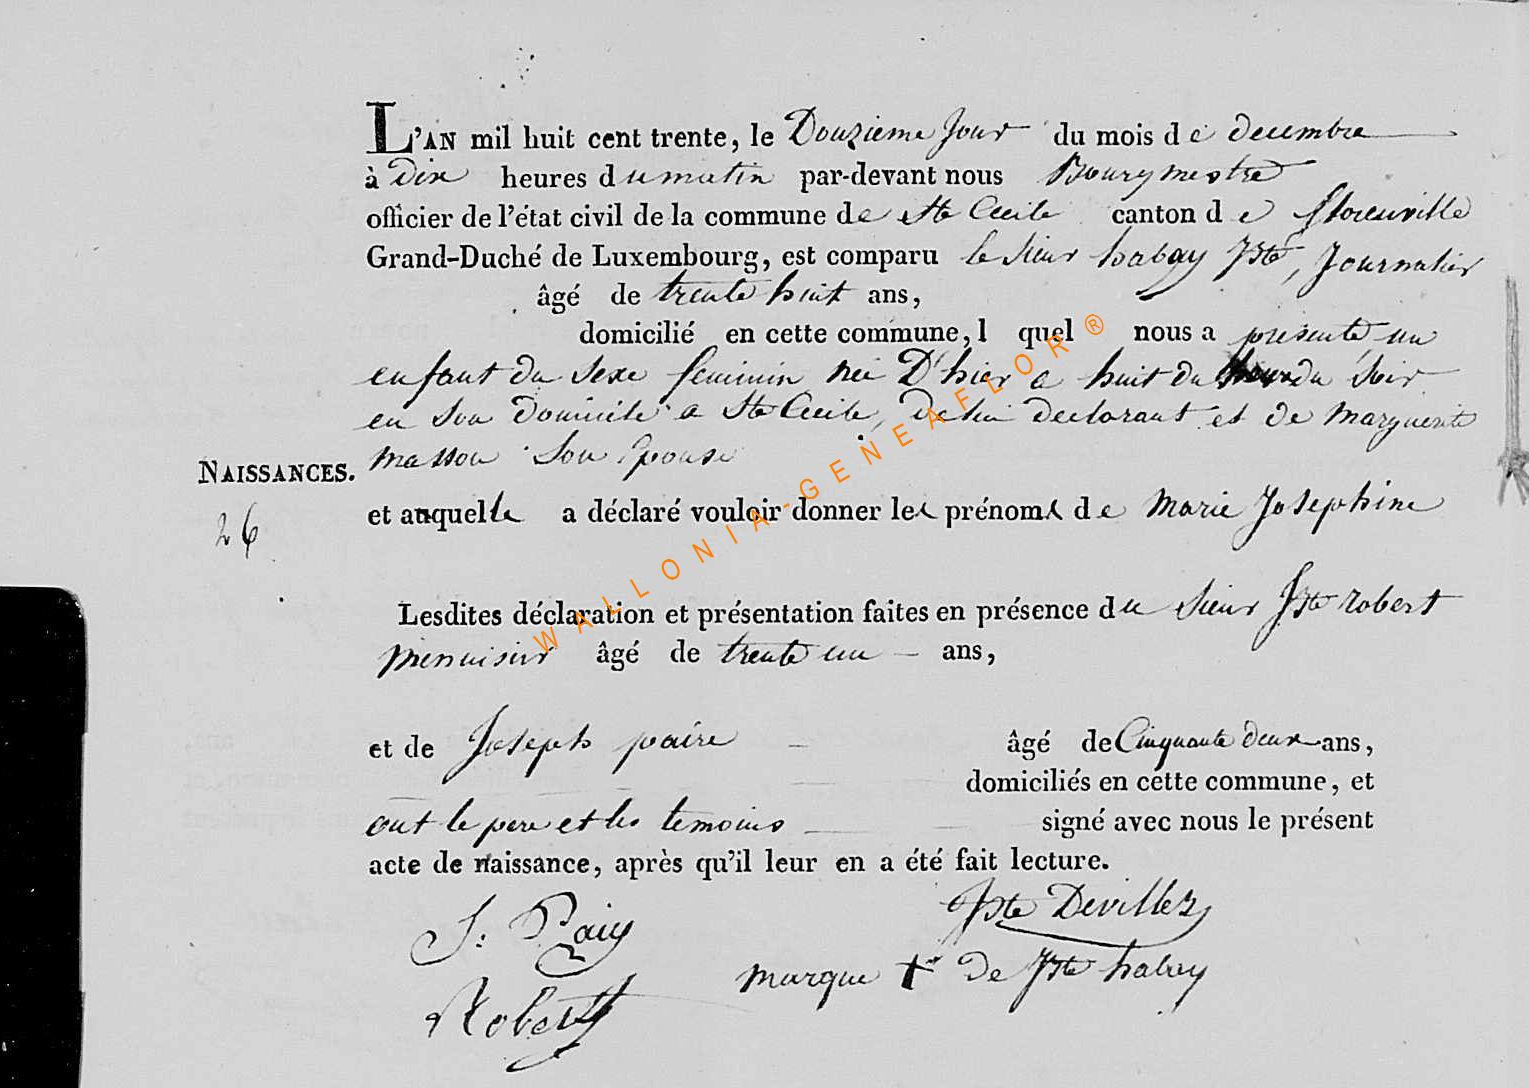 L'AN mil huit cent trente, le Douzieme Jour du mois de decembre
à Dix heures du matin par-devant nous Bourgmestre
officier de l'état civil de la commune de Ste Cecile canton de florenville
Grand-Duché de Luxembourg, est comparu le Sieur habay Jste, Journalier
âgé de trente huit ans,
domicilié en cette commune, l quel nous a présenté un
enfant du Sexe feminin née D'hier a huit du du Soir
en Son domicile a Ste Cecile, de lui declarant et de Marguerite
masson Son Epouse
NAISSANCES.
et auquelle a déclaré vouloir donner les prénoms de Marie Josephine
26
Lesdites déclaration et présentation faites en présence du Sieur Jste robert
menuisier âgé de trente un ans,
et de Joseph paire âgé de Cinquante deux ans,
domiciliés en cette commune, et
ont le pere et les temoins signé avec nous le présent
acte de naissance, après qu'il leur en a été fait lecture.
J: Jste Devillez
marque + de Jste habay
Robert
WALLONIA-GENEAFLOR®